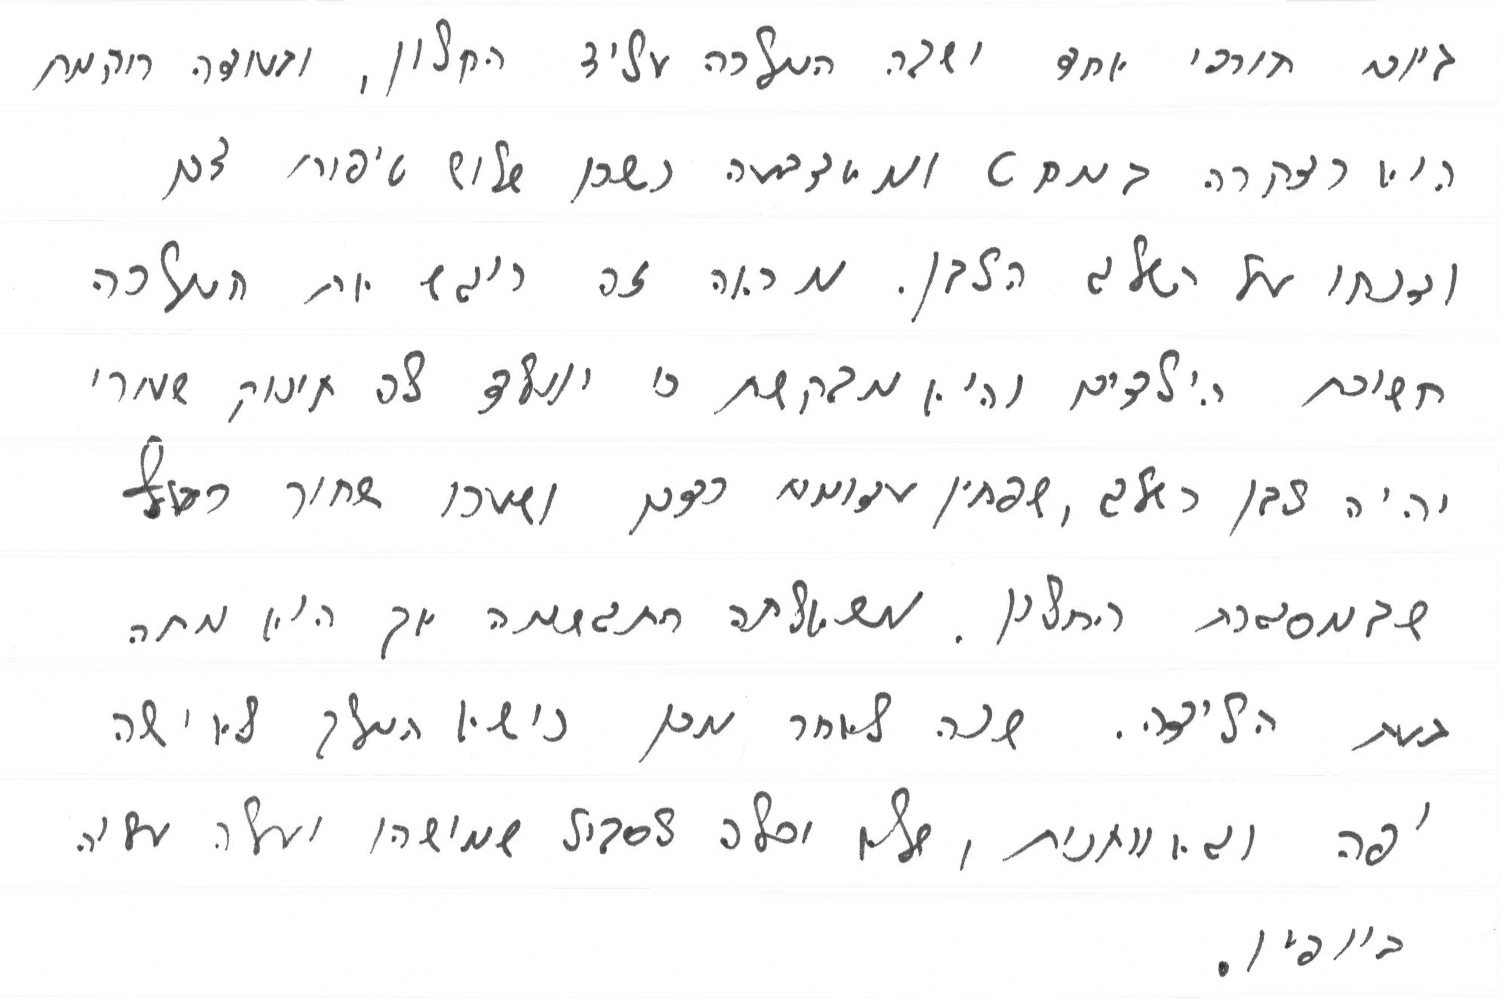 ביום חורפי אחד ישבה המלכה על יד החלון, ובעודה רוקמת
היא נדקרה במחט ומאצבעה נשרו שלוש טיפות דם
וצנחו על השלג הלבן. מראה זה ריגש את המלכה
חשוכת הילדים והיא מבקשת כי יוולד לה תינוק שעורו
יהיה לבן כשלג, שפתיו אדומות כדם ושערו שחור כעץ
שבמסגרת החלון. משאלתה התגשמה אך היא מתה
בעת הלידה. שנה לאחר מכן נישא המלך לאישה
יפה וגאוותנית, שלא יכלה לסבול שמישהו יעלה עליה
ביופיו.